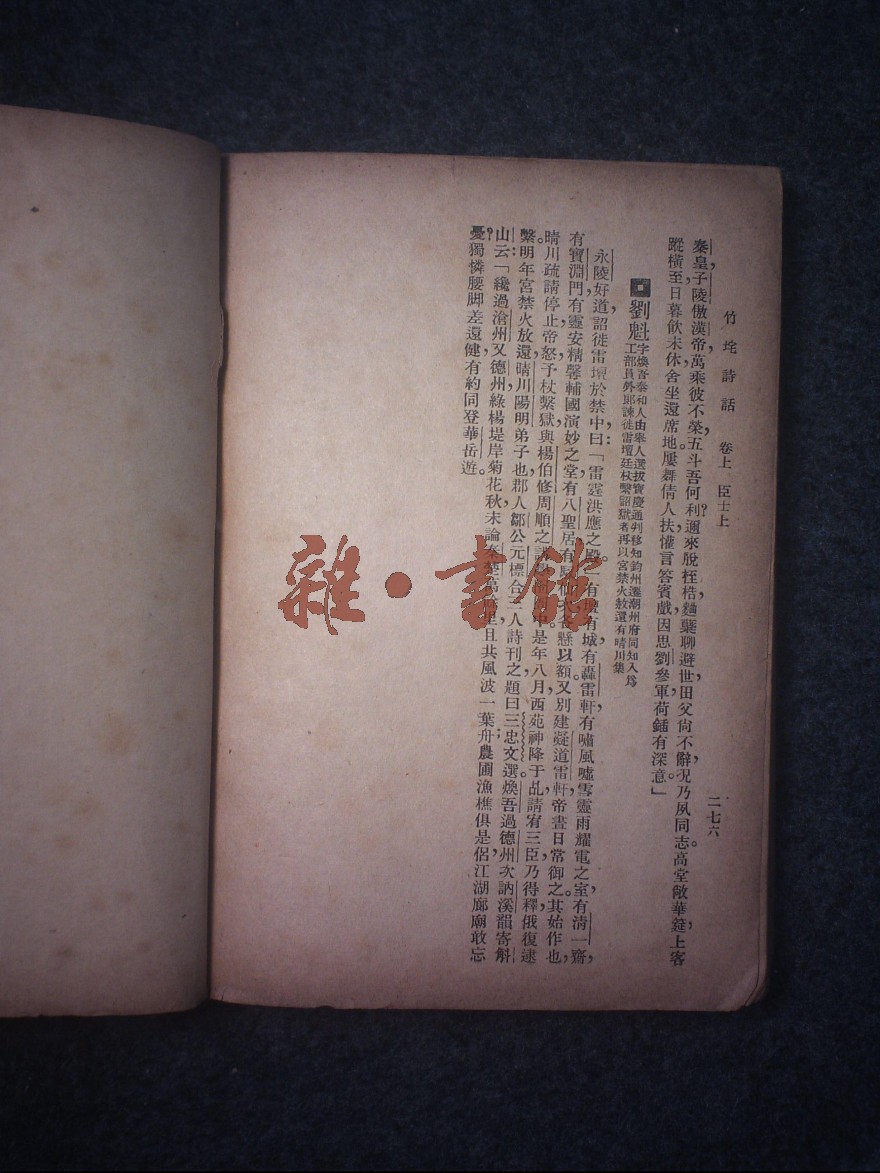 竹垞詩話　卷上　臣士上　二七六
秦皇，子陵傲漢帝，萬乘彼不榮，五斗吾何利？邇來脫桎梏，麯糵聊避世，田父尙不辭，況乃夙同志。高堂敞華筵，上客
蹤橫至，日暮飲未休，舍坐還席地，屢舞倩人扶，懽言答賓戲，因思劉參軍，荷鍤有深意。」
劉魁　字煥吾，泰和人，由舉人選拔寶慶通判，移知鈞州，遷潮州府同知，入爲
工部員外郎，諫徙雷壇，廷杖繫詔獄者再，以宮禁火赦還，有晴川集
永陵好道，詔徙雷壇於禁中，曰：「雷霆洪應之殿。」有壇有城，有轟雷軒，有嘯風噓雪靈雨耀電之室，有清一齋，
有寶淵門，有靈安精馨輔國演妙之堂，有八聖居，有仙懸以額，又別建凝道雷軒，帝晝日常御之。其始作也，
晴川疏請停止，帝怒，予杖繫獄，與楊伯修周順之講中。是年八月，西苑神降于乩，請宥三臣，乃得釋，俄復逮
繫，明年宮禁火，放還。晴川，陽明弟子也，郡人鄒公元標合三人詩刊之，題曰：三忠文選。煥吾過德州次訥溪韻寄斛
山云：「纔過滄州又德州，綠楊堤岸菊花秋，未論里，且共風波一葉舟，農圃漁樵俱是侶，江湖廊廟敢忘
憂？獨憐腰脚差還健，有約同登華岳遊。
雜·書館